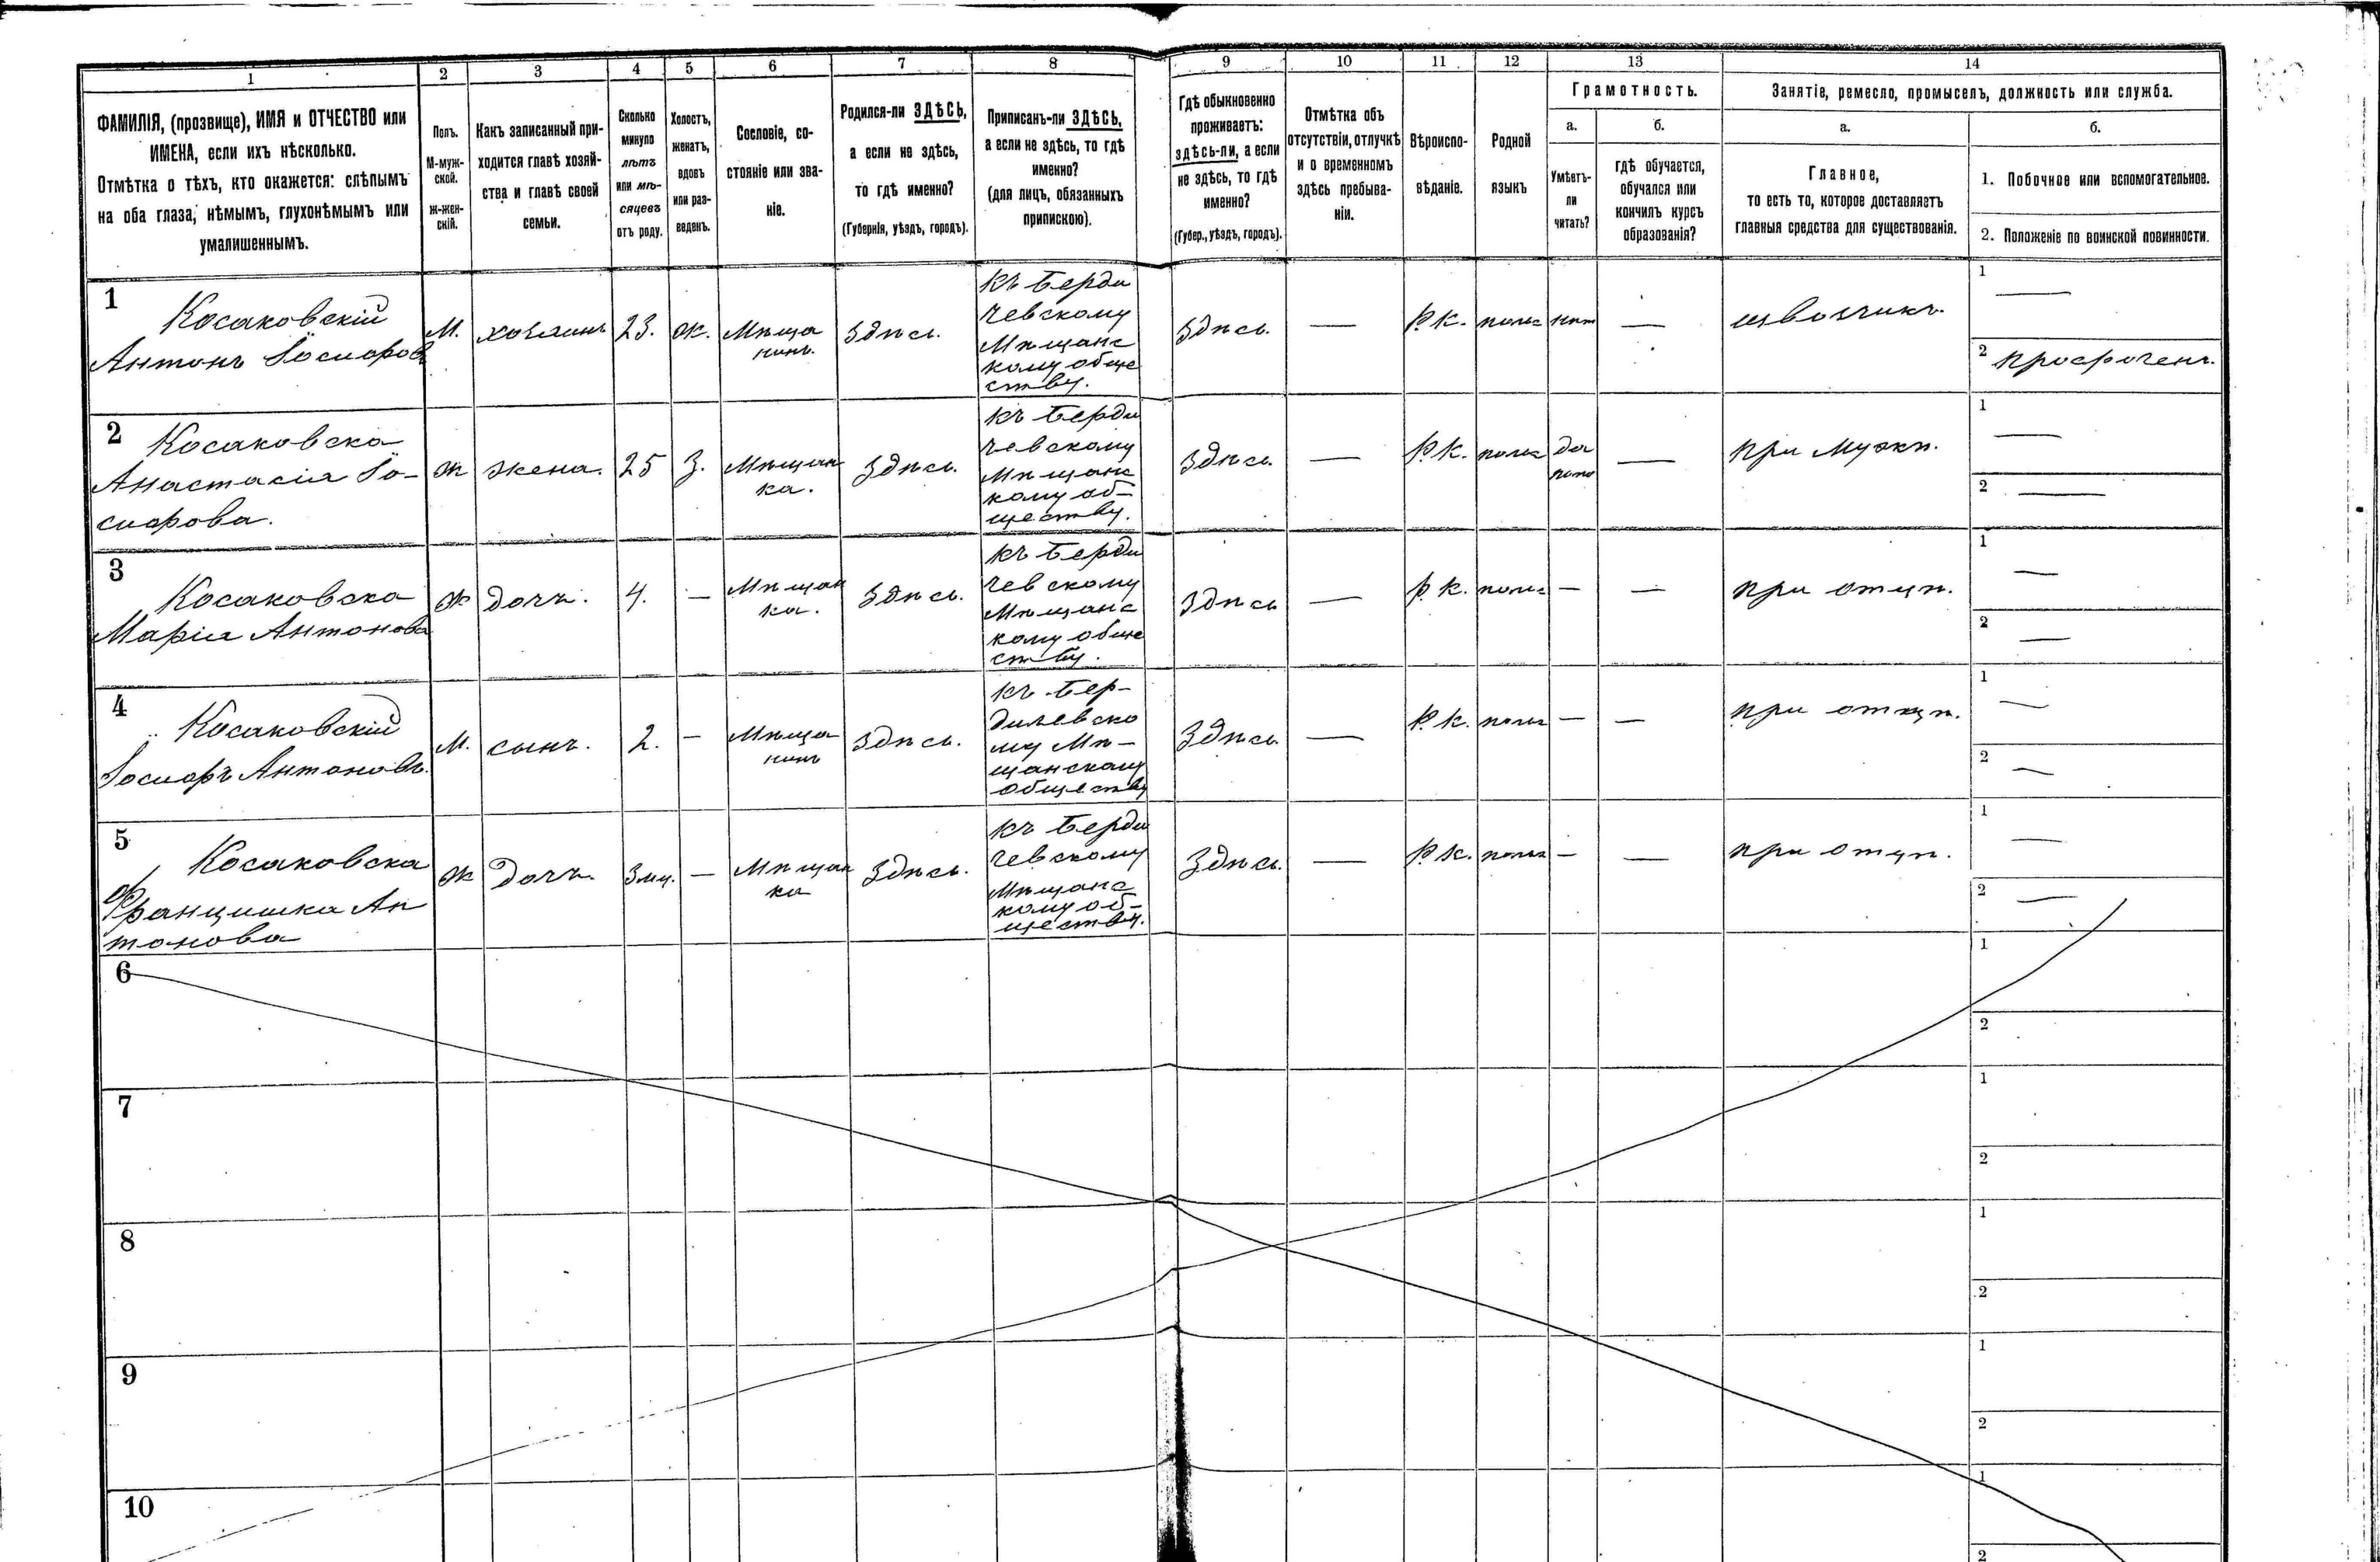 1 2 3 4 5 6 7 8 9 10 11 12 13 14
ФАМИЛІЯ, (прозвище), ИМЯ и ОТЧЕСТВО или
ИМЕНА, если ихъ нѣсколько.
Отмѣтка о тѣхъ, кто окажется: слѣпымъ
на оба глаза, нѣмымъ, глухонѣмымъ или
умалишеннымъ.
Полъ.
М-муж-
ской.
Ж-жен-
скій.
Какъ записанный при-
ходится главѣ хозяй-
ства и главѣ своей
семьи.
Сколько
минуло
лѣтъ
или мѣ-
сяцевъ
отъ роду.
Холостъ,
женатъ,
вдовъ
или раз-
веденъ.
Сословіе, со-
стояніе или зва-
ніе.
Родился-ли ЗДѢСЬ,
а если не здѣсь,
то гдѣ именно?
(Губернія, уѣздъ, городъ).
Приписанъ-ли ЗДѢСЬ,
а если не здѣсь, то гдѣ
именно?
(для лицъ, обязанныхъ
припискою).
Гдѣ обыкновенно
проживаетъ:
здѣсь-ли, а если
не здѣсь, то гдѣ
именно?
(Губер., уѣздъ, городъ).
Отмѣтка объ
отсутствіи, отлучкѣ
и о временномъ
здѣсь пребыва-
ніи.
Вѣроиспо-
вѣданіе.
Родной
языкъ
Грамотность.
а.
Умѣетъ-
ли
читать?
б.
гдѣ обучается,
обучался или
кончилъ курсъ
образованія?
Занятіе, ремесло, промыселъ, должность или служба.
а.
Главное,
то есть то, которое доставляетъ
главныя средства для существованія.
б.
1. Побочное или вспомогательное.
2. Положеніе по воинской повинности.
1
Косаковскій
Антонъ Іосифовъ
М.
хозяинъ
23.
ж.
Мѣща
нинъ.
Здѣсь.
Къ Берди
чевскому
Мѣщанс
кому обще
ству.
Здѣсь.
—
Р.К.
польс
нѣт
—
извозчикъ.
1 —
2 просроченъ.
2
Косаковска
Анастасія Іо-
сифова.
Ж
жена.
25
З.
Мѣщан
ка.
Здѣсь.
Къ Берди
чевскому
Мѣщанс
кому об-
ществу.
Здѣсь.
—
Р.К.
польс
—
при Мужѣ.
1 —
2 —
3
Косаковска
Марія Антонова
Ж
дочь.
4.
—
Мѣщан
ка.
Здѣсь.
Къ Берди
чевскому
Мѣщанс
кому обще
ству.
Здѣсь
—
Р.К.
польс
—
—
при отцѣ.
1 —
2 —
4
Косаковскій
Іосифъ Антоновъ.
М.
сынъ.
2.
—
Мѣща
нинъ
Здѣсь.
Къ Бер-
дичевско
му Мѣ-
щанскому
обществу
Здѣсь
—
Р.К.
польс
—
—
при отцѣ.
1 —
2 —
5
Косаковска
Францишка Ан
тонова
Ж
Дочь.
3 мц.
—
Мѣщан
ка
Здѣсь.
Къ Берди
чевскому
Мѣщанс
кому об-
ществу.
Здѣсь.
—
Р.К.
польс
—
—
при отцѣ.
1 —
2 —
6
1
2
7
1
2
8
1
2
9
1
2
10
1
2